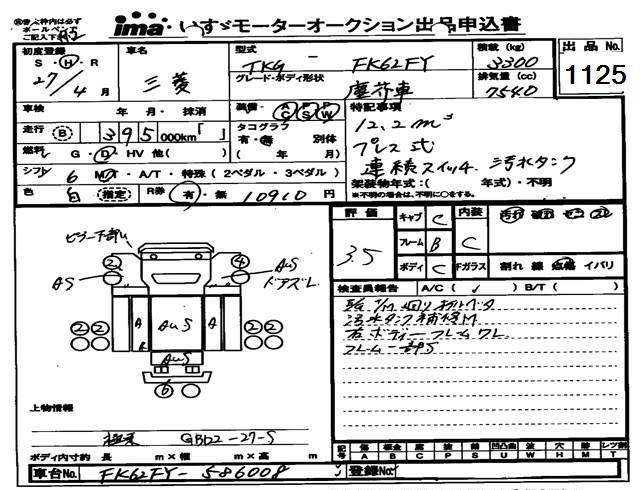 ㊟太枠内は必ず
ボールペンで
ご記入下さい
ima いすゞモーターオークション出品申込書
初度登録 車名 型式 積載 (kg) 出品 No.
S・H・R 三菱 TKG - FK62FY 3300 1125
27/4月 グレード・ボディ形状 塵芥車 排気量 (cc) 7540
車検 年 月・抹消 装備・ AC PS PW 特記事項
12.2m³
走行 B 395 000km「 」 タコグラフ 有・無 別体 プレス式
燃料 G・D・HV 他( ) ( 年 月) 連続スイッチ 汚水タンク
シフト 6 MT・A/T・特殊(2ペダル・3ペダル) 架装物年式:( 年式)・不明
※不明の場合は、不明に○をする。
色 白 (指定) R券 有・無 10910 円
評価 3.5 キャブ C 内装 C
フレーム B
ボディ C Fガラス 割れ 線 点傷 イバリ
ピラー下部
2 4
AS AuS
ドアズレ
2 2 A AuS A 2 2
AuS
6
検査員報告 A/C( ✓ ) B/T( )
汚水タンク補修M
右ボディーフレームワレ
フレーム一部S
上物情報
極東 GB22-27-S
ボディ内寸約 長 m×幅 m×高 m
記号 傷 板金 腐 錆 凹凸曲 波 穴 跡 レツ割
A B C P S U W H M T
車台No. FK62FY-586008 登録No.